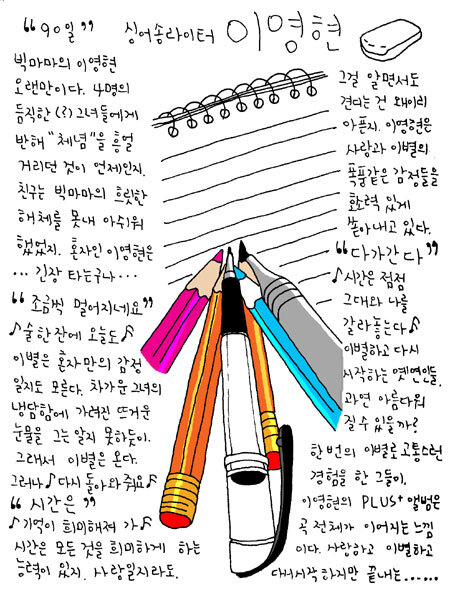 "90일"
싱어송라이터 이영현
빅마마의 이영현
오랜만이다. 4명의
듬직한 (?) 그녀들에게
반해 "체념"을 흥얼
거리던 것이 언제인지.
친구는 빅마마의 흐릿한
해체를 못내 아쉬워
했었지. 혼자인 이영현은
... 긴장 타는구나...
"조금씩 멀어지네요"
♪술 한잔에 오늘도♪
이별은 혼자만의 감정
일지도 모른다. 차가운 그녀의
냉담함에 가려진 뜨거운
눈물을 그는 알지 못하듯이.
그래서 이별은 온다.
그러나 ♪다시 돌아와 줘요♪
"시간은"
♪기억이 희미해져 가♪
시간은 모든 것을 희미하게 하는
능력이 있지. 사랑일지라도.
그걸 알면서도
견디는 건 왜이리
아픈지. 이영현은
사랑과 이별의
폭풍같은 감정들을
호소력 있게
쏟아내고 있다.
"다가간다"
♪시간은 점점
그대와 나를
갈라놓는다♪
이별하고 다시
시작하는 옛연인들.
과연 아름다워
질 수 있을까?
한번의 이별로 고통스런
경험을 한 그들이.
이영현의 PLUS+ 앨범은
곡 전체가 이어지는 느낌
이다. 사랑하고 이별하고
다시 시작하지만 끝내는......